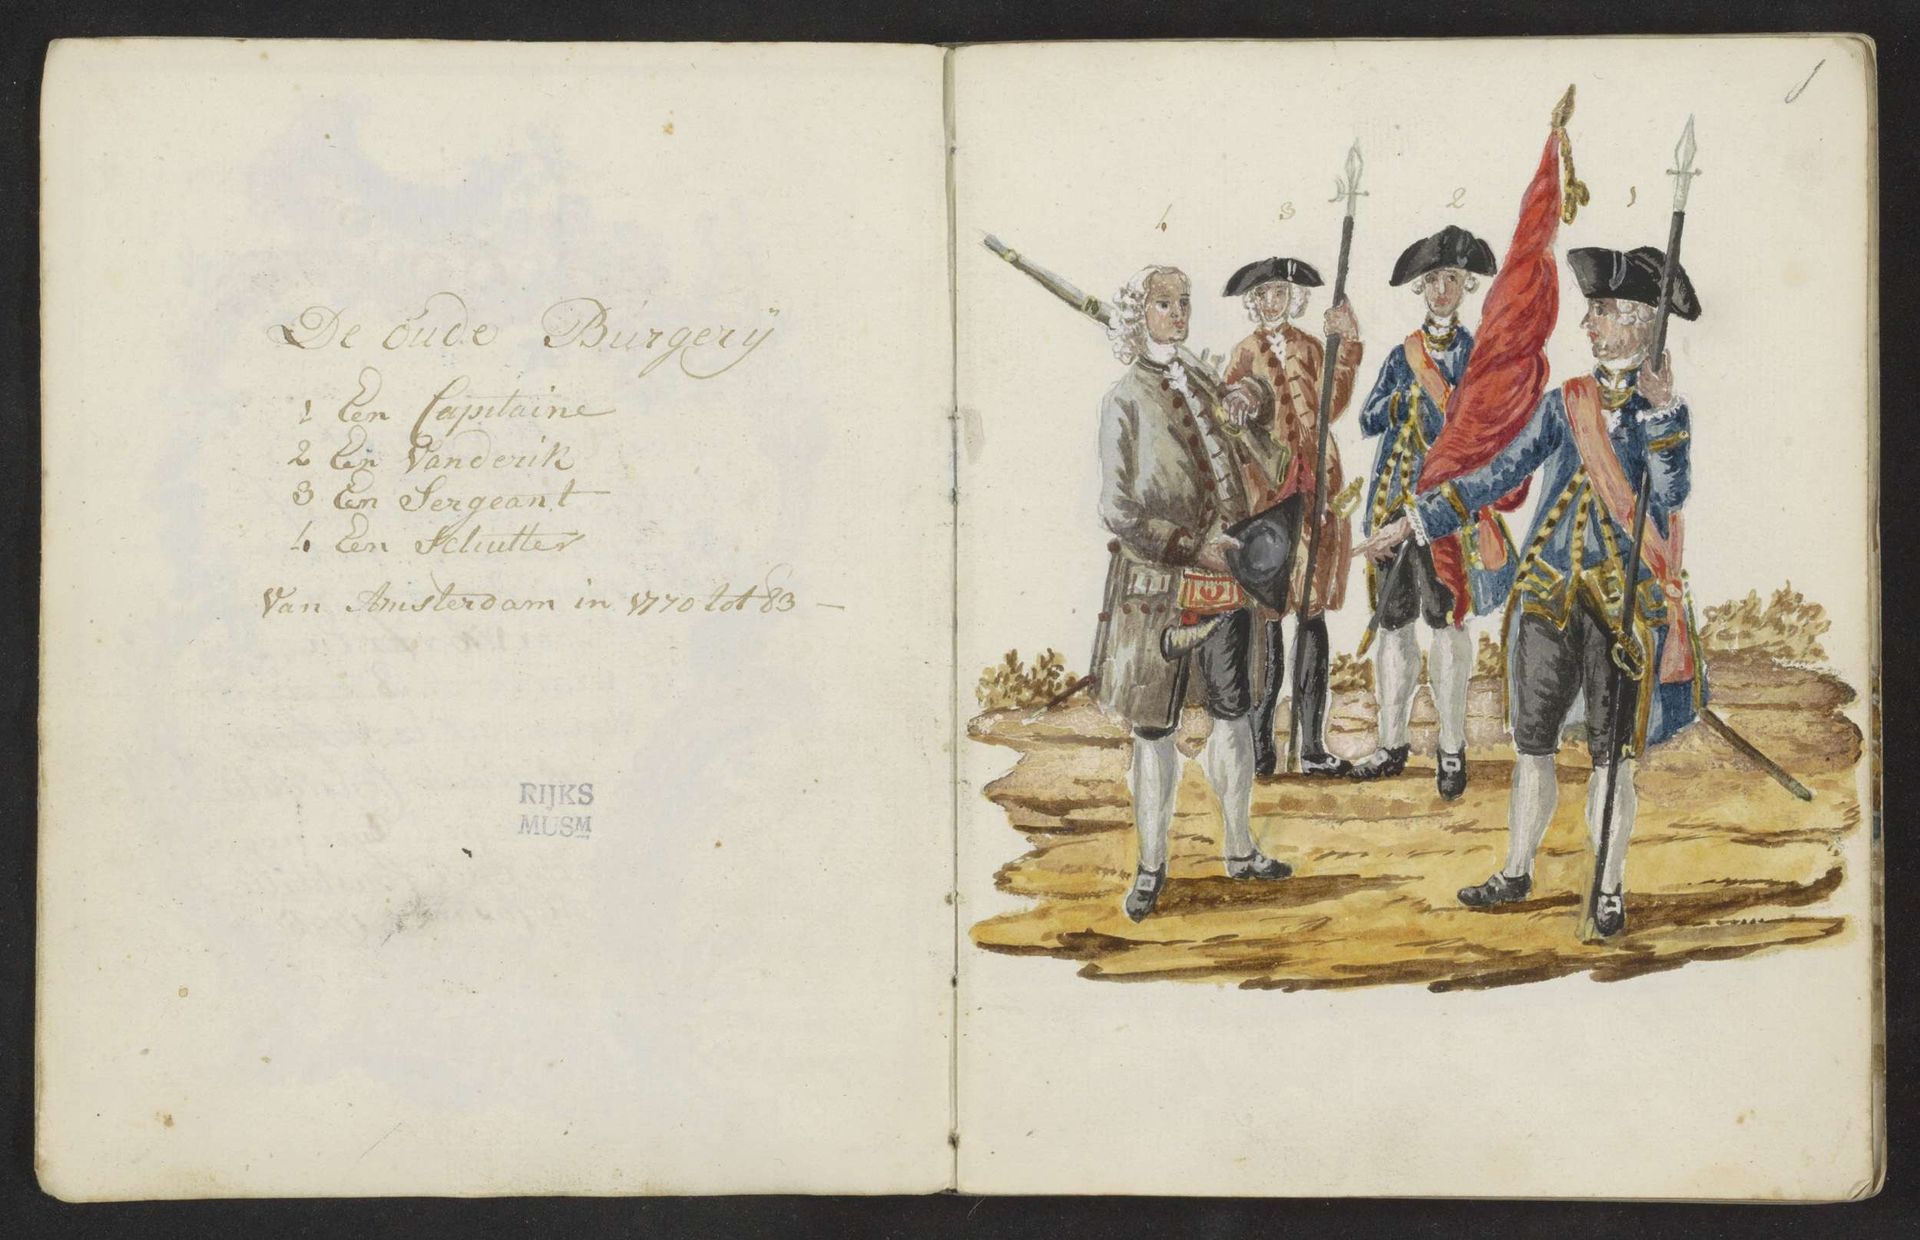 De oude Burgerÿ
1 Een Capitaine
2 Een Vanderik
3 Een Sergeant
4 Een Schutter
Van Amsterdam in 1770 tot 83 —
RIJKS
MUSM
4 3 2 1
1